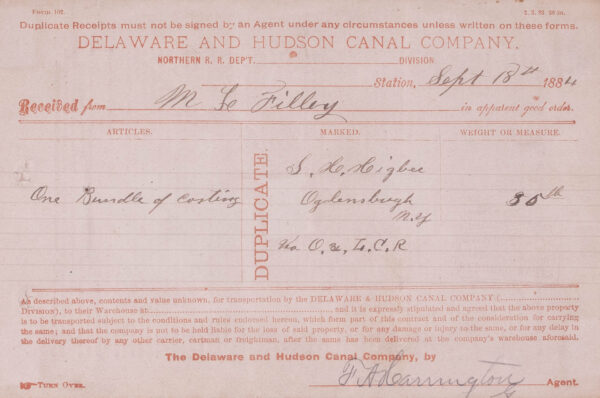 Form 102. 
Duplicate Receipts must not be signed by an Agent under any circumstances unless written on these forms.
DELAWARE AND HUDSON CANAL COMPANY.
NORTHERN R. R. DEP'T. DIVISION
Station, Sept 18th 1884
Received from M L Filley in apparent good order.
ARTICLES. MARKED. WEIGHT OR MEASURE.
DUPLICATE
S. H. Higbee
One Bundle of Casting Ogdensburgh 35 lb
N.Y
Via O. & L. C. R
As described above, contents and value unknown, for transportation by the DELAWARE & HUDSON CANAL COMPANY (
DIVISION), to their Warehouse at and it is expressly stipulated and agreed that the above property
is to be transported subject to the conditions and rules endorsed hereon, which form part of this contract and of the consideration for carrying
the same; and that the company is not to be held liable for the loss of said property, or for any damage or injury to the same, or for any delay in
the delivery thereof by any other carrier, cartman or freightman, after the same has been delivered at the company's warehouse aforesaid.
The Delaware and Hudson Canal Company, by
TURN OVER. F A Harrington Agent.